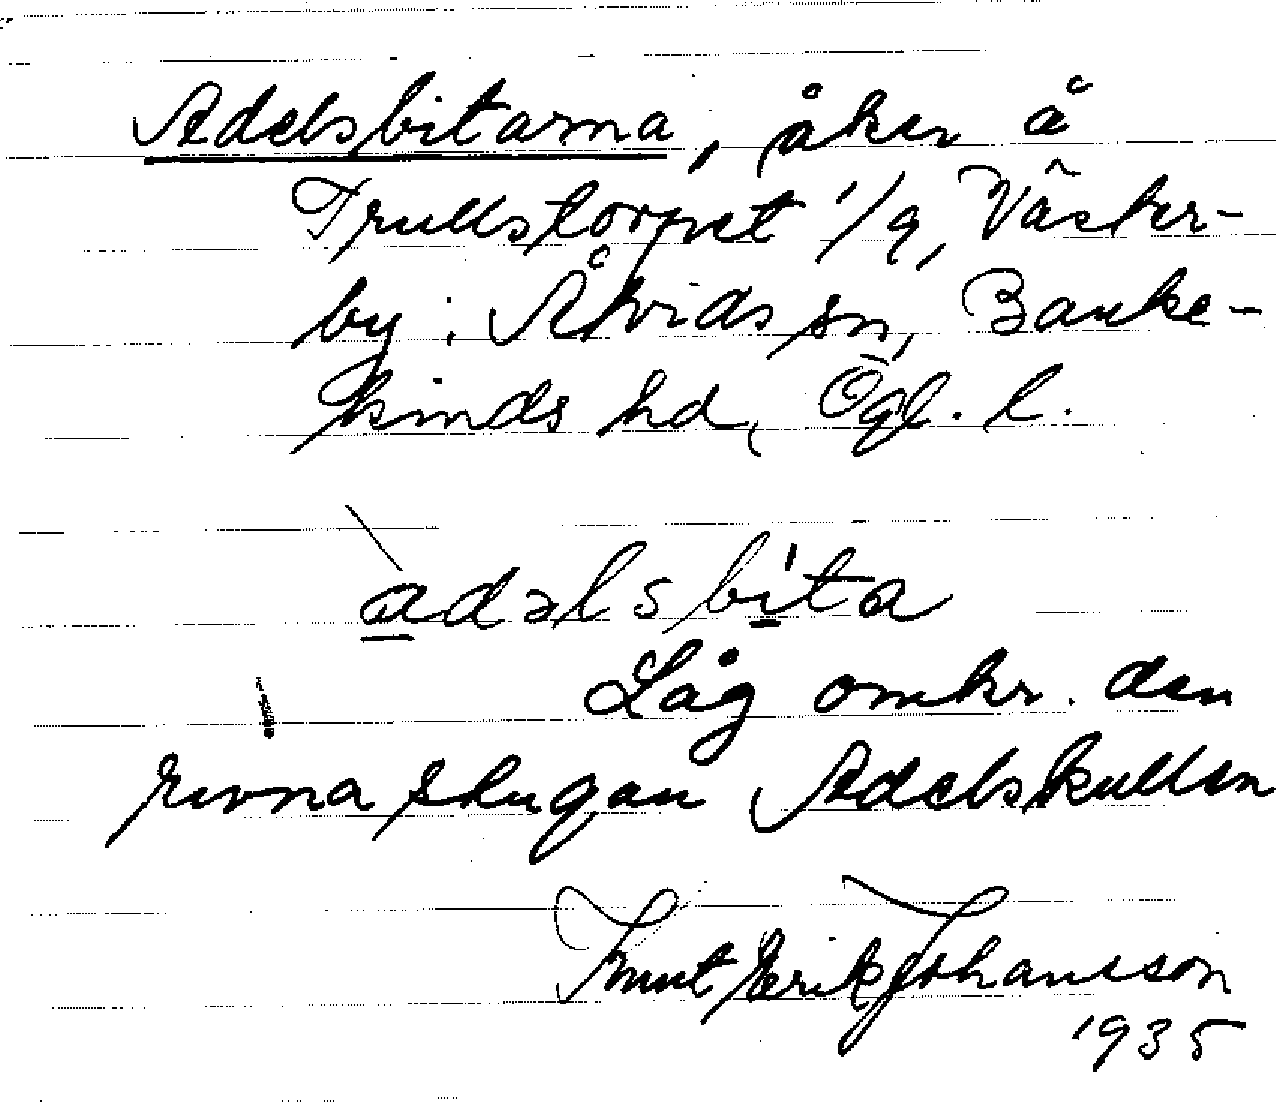 Adelsbitarna, åker å
Trullstorpet 1/9, Väster-
by. Åtvids sn, Banke-
kinds hd, Ögl. l.
adəlsbita
Låg omkr. den
rivna stugan Adelskullen
Knut Erik Johansson
1935